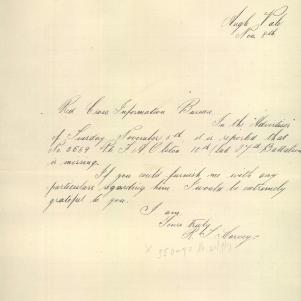 Hugh Vale
Nov. 8th
Red Cross Information Bureau
In the Advertiser
of Tuesday November 6th, it is reported that
No 2669 Pte J. A. Clifton 10th late 37th Battalion
is missing.
If you could furnish me with any
particulars regarding him I would be extremely
grateful to you.
I am
Yours truly
H. J. Harvey